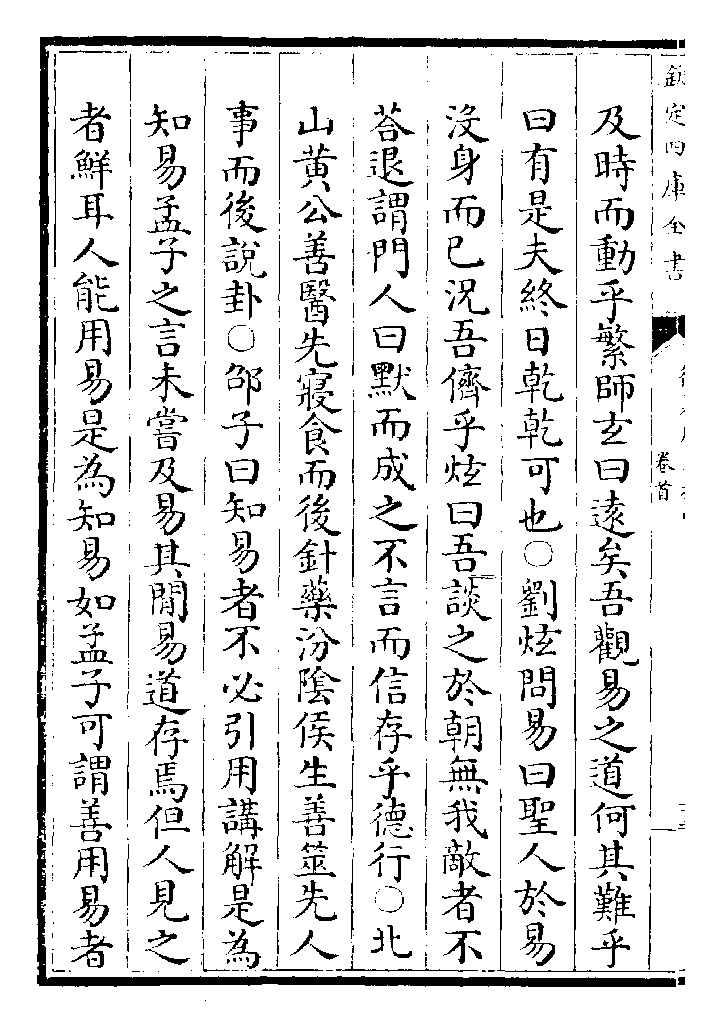 欽定四庫全書
卷首
及時而動乎繁師玄曰逺矣吾觀易之道何其難乎
曰有是夫終日乾乾可也○劉炫問易曰聖人於易
沒身而已況吾儕乎炫曰吾談之於朝無我敵者不
荅退謂門人曰默而成之不言而信存乎德行○北
山黄公善醫先寢食而後針藥汾隂侯生善筮先人
事而後說卦○邵子曰知易者不必引用講解是為
知易孟子之言未嘗及易其間易道存焉但人見之
者鮮耳人能用易是為知易如孟子可謂善用易者